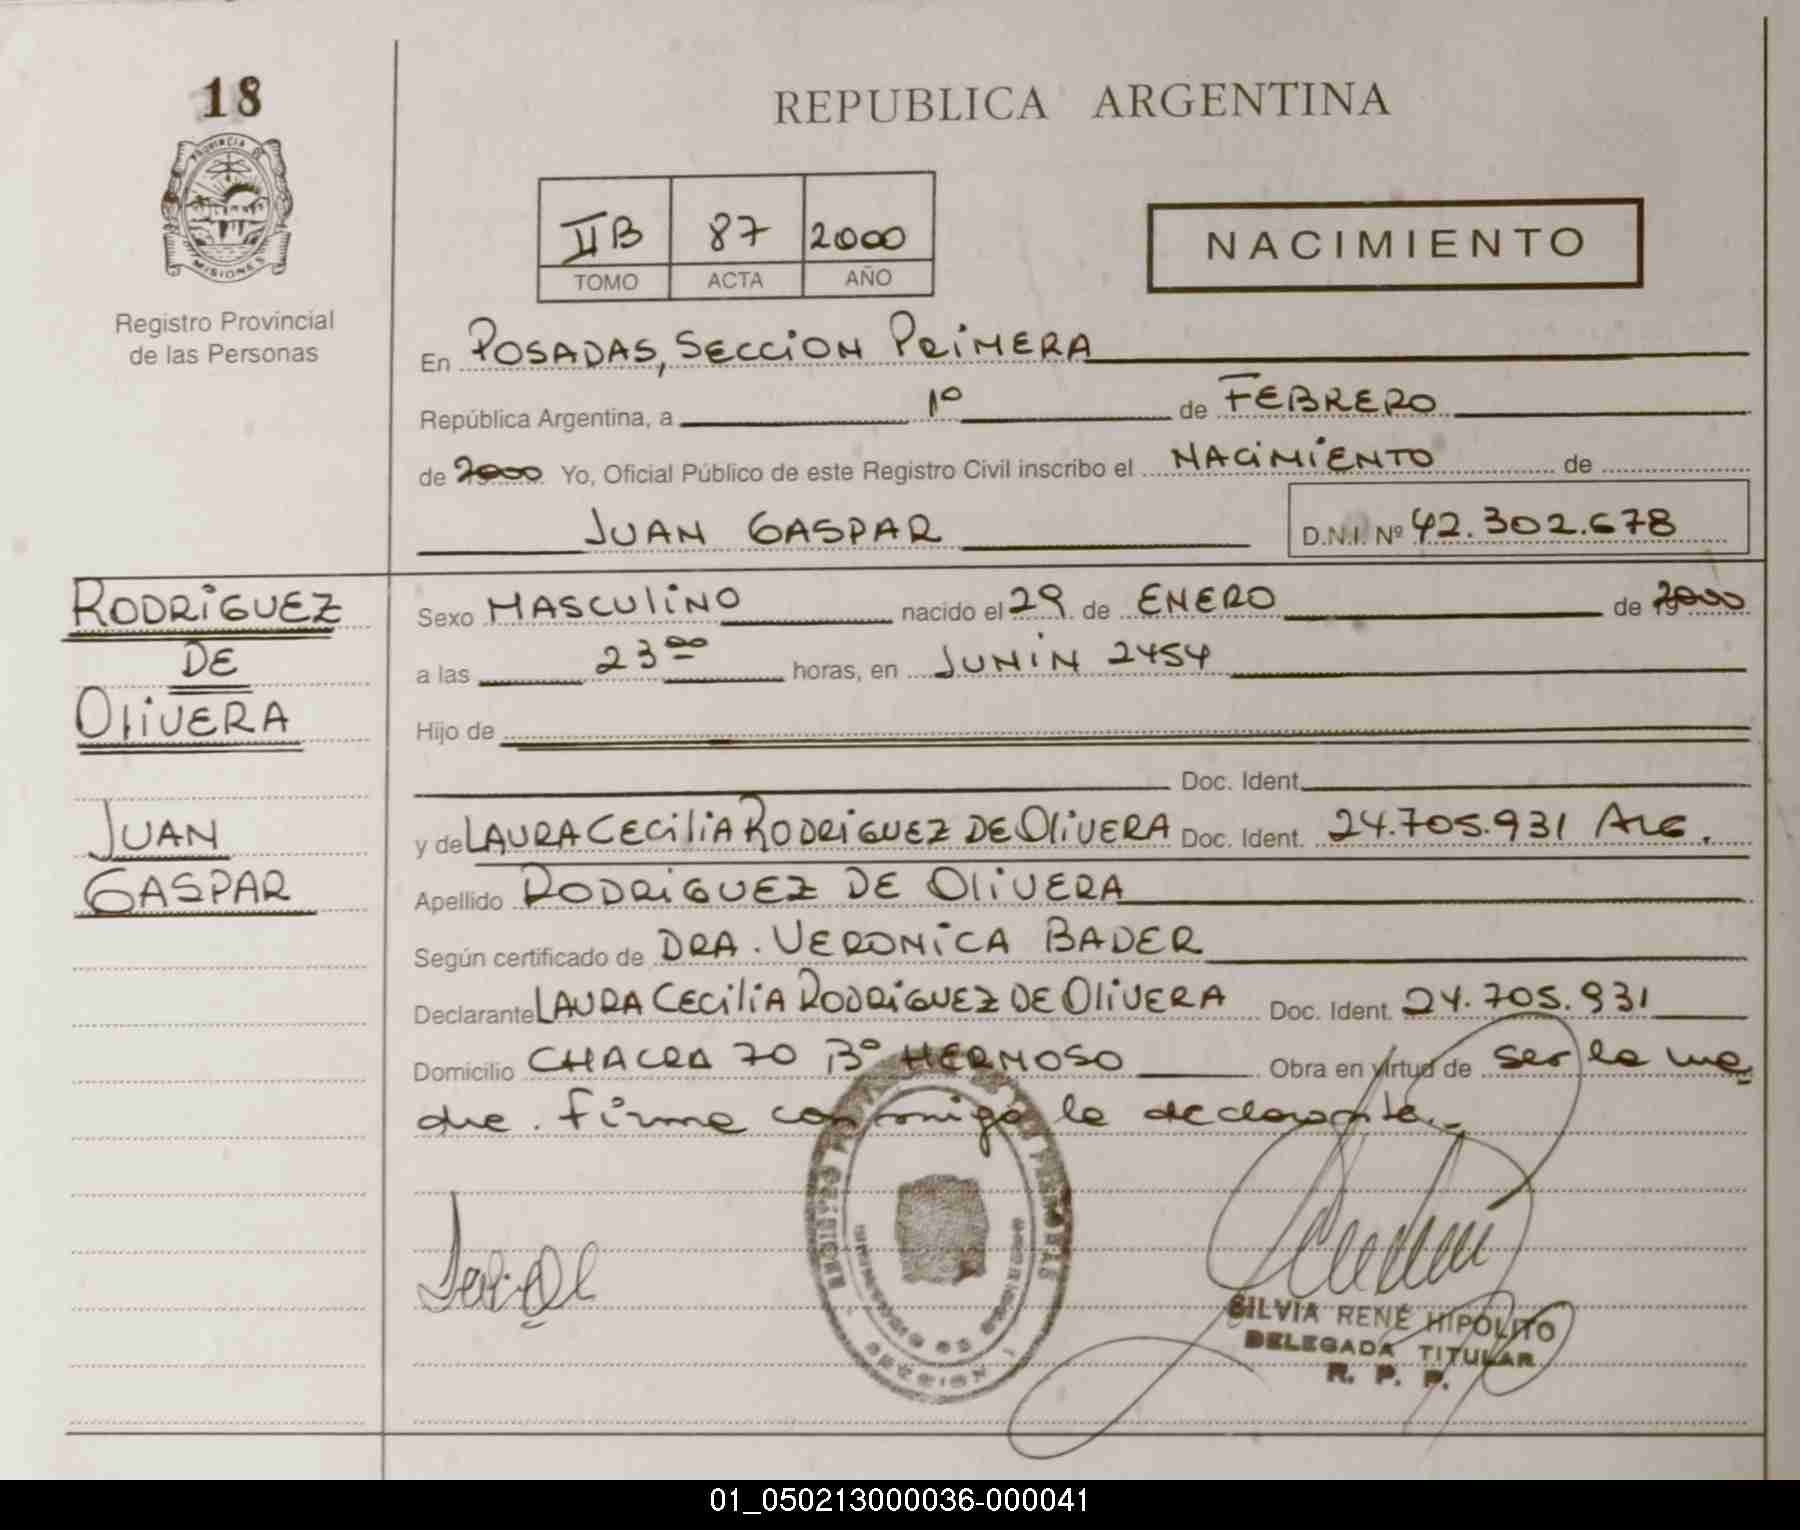 18
PROVINCIA DE
MISIONES
Registro Provincial
de las Personas
REPUBLICA ARGENTINA
IIB 87 2000
TOMO ACTA AÑO
NACIMIENTO
En POSADAS, SECCION PRIMERA
República Argentina, a 1º de FEBRERO
de 2000 Yo, Oficial Público de este Registro Civil inscribo el NACIMIENTO de
JUAN GASPAR D.N.I. Nº 42.302.678
RODRIGUEZ
DE
OLIVERA
JUAN
GASPAR
Sexo MASCULINO nacido el 29 de ENERO de 2000
a las 23 00 horas, en JUNIN 2454
Hijo de
Doc. Ident.
y de LAURA CECILIA RODRIGUEZ DE OLIVERA Doc. Ident. 24.705.931 ARG.
Apellido RODRIGUEZ DE OLIVERA
Según certificado de DRA. VERONICA BADER
Declarante LAURA CECILIA RODRIGUEZ DE OLIVERA Doc. Ident. 24.705.931
Domicilio CHACRA 70 Bº HERMOSO Obra en virtud de ser la ma-
dre. Firma conmigo la declarante.-
SILVIA RENÉ HIPOLITO
DELEGADA TITULAR
R. P. P.
01_050213000036-000041